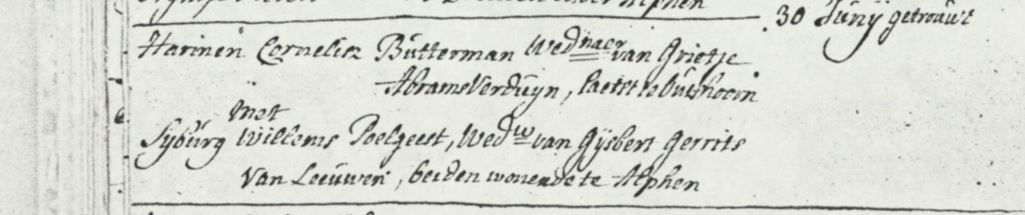 Alphen
30 Junij getrouwt
Harmen Cornelisz Butterman Wednaer van Grietje
Abrams Verduyn, laetst te Outshoorn
met
Syburg Willems Poelgeest, Wedw van Gijsbert Gerrits
Van Leeuwen, beiden wonende te Alphen